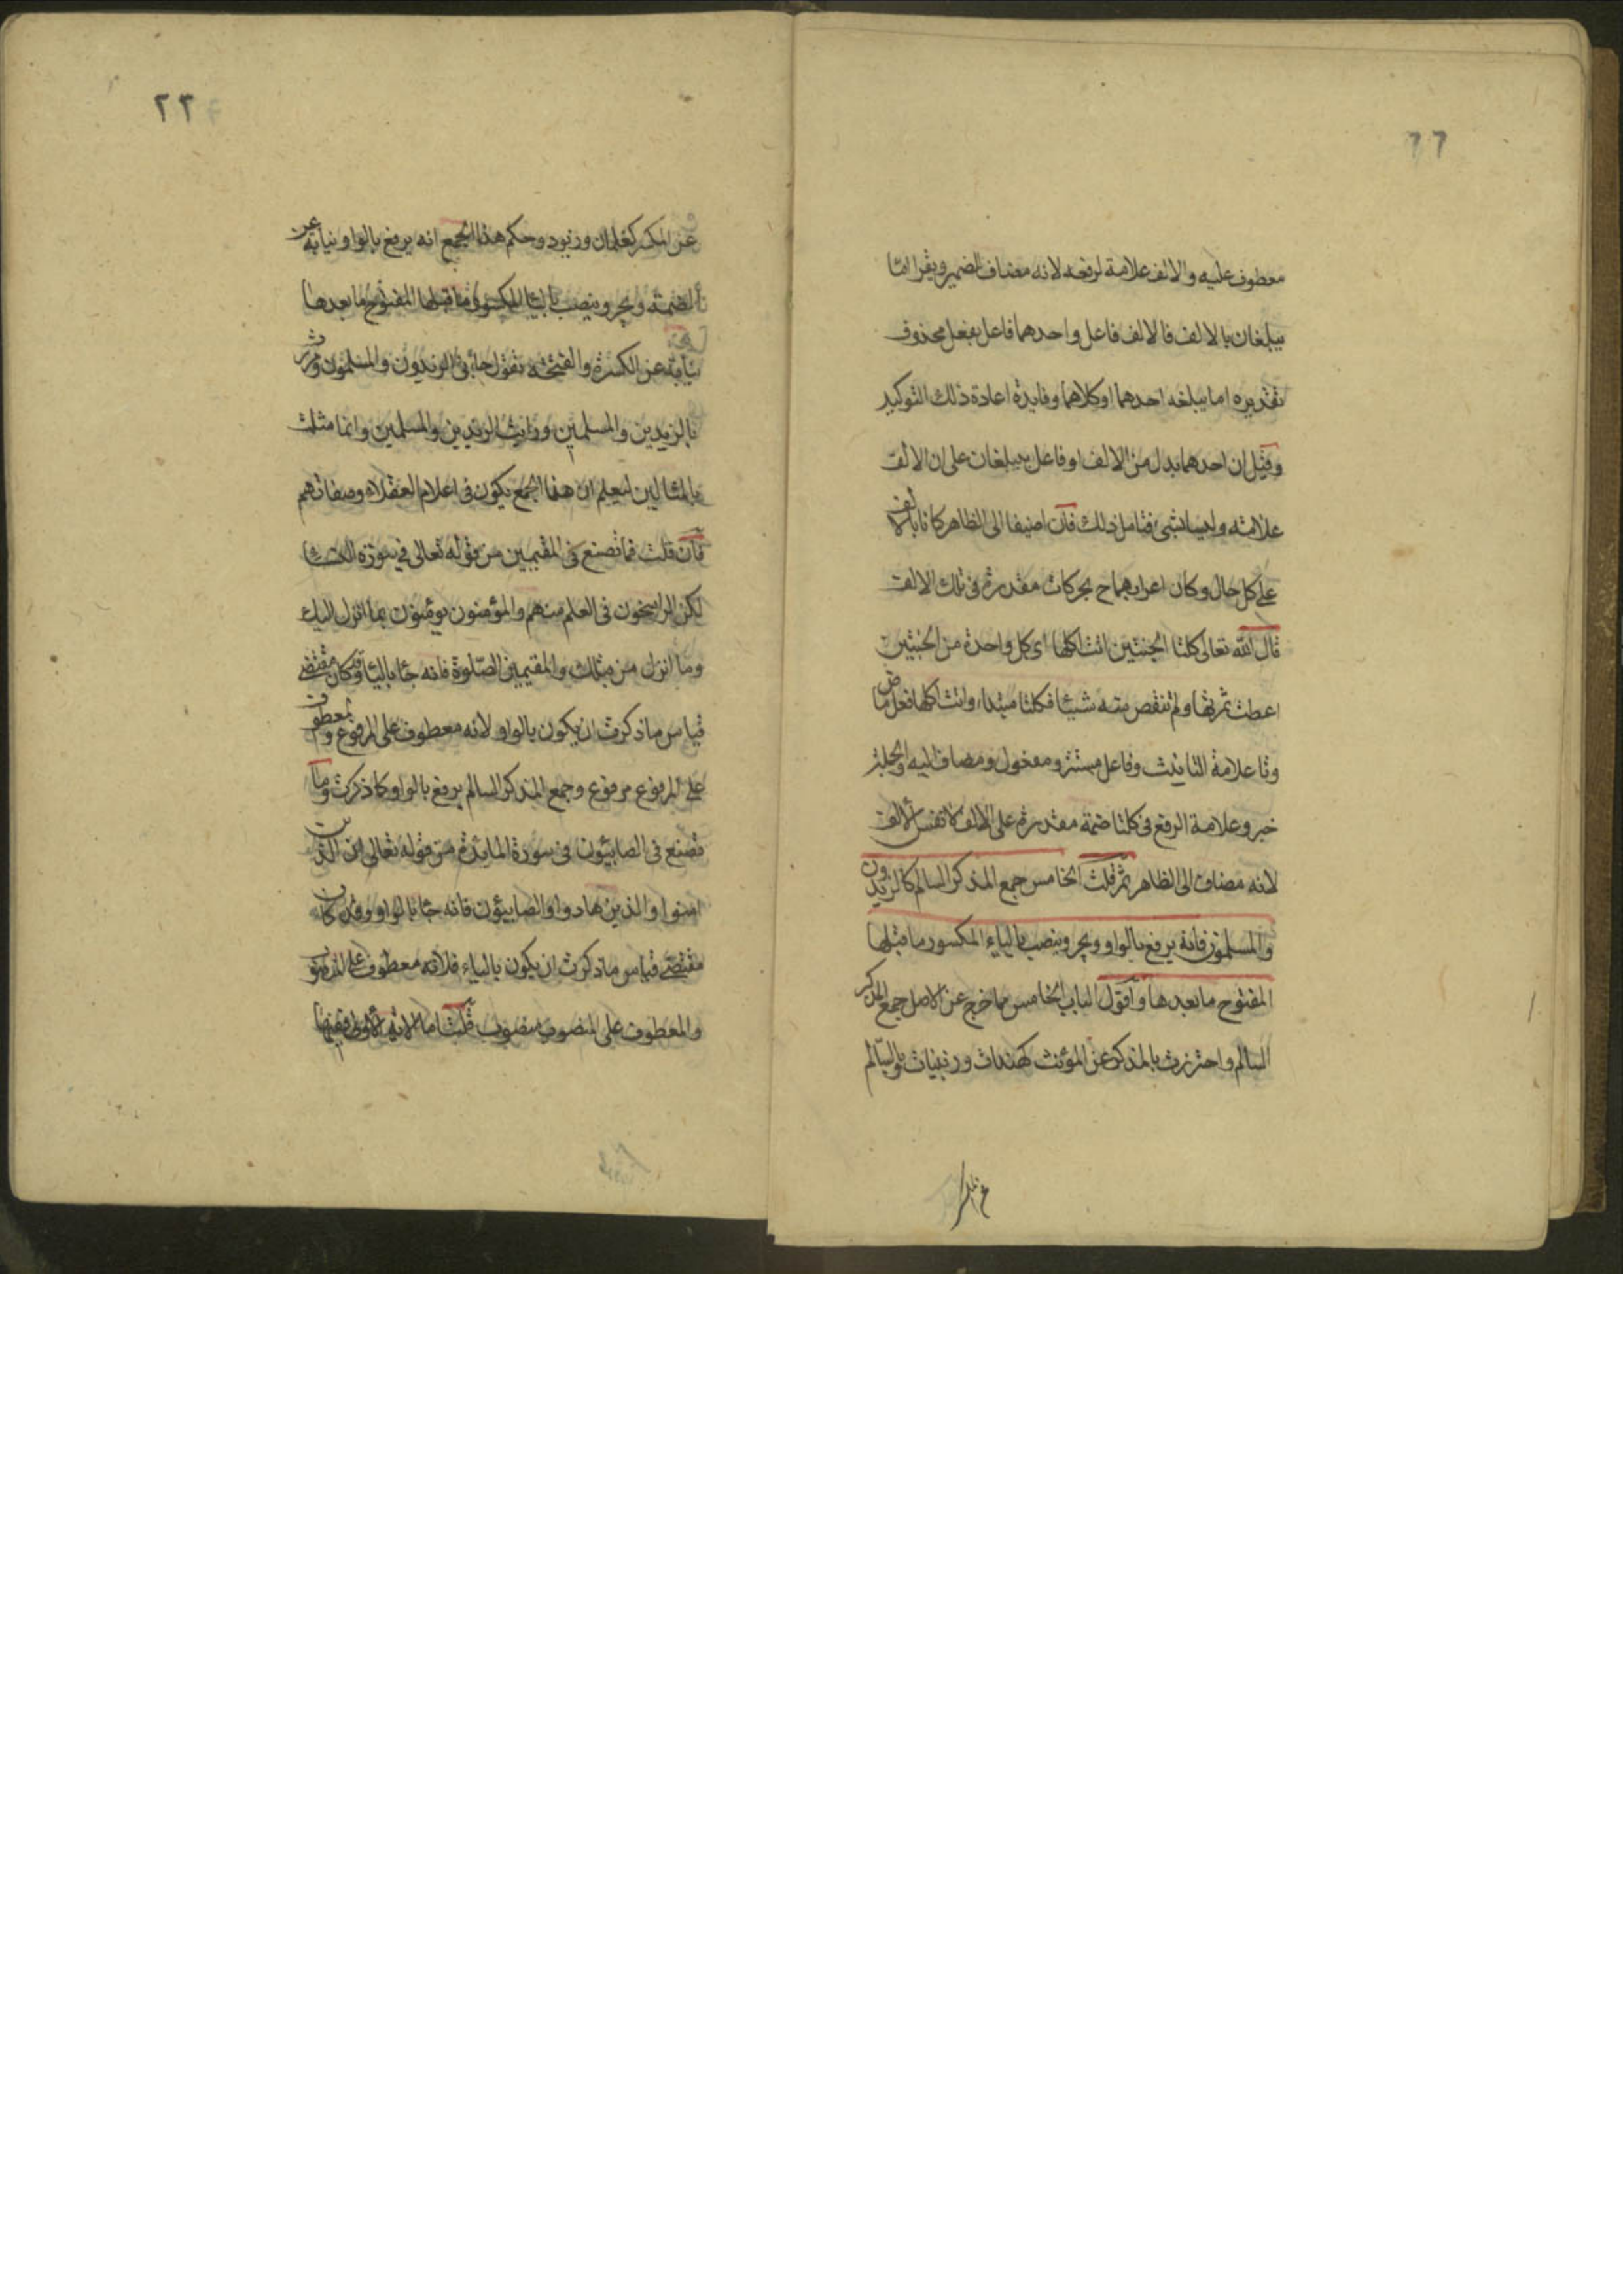 ٢٢
معطوف عليه والالف علامة لرفعه لانه مضاف الضمير ويقرا اما
يبلغان بالالف فالالف فاعل واحدهما فاعل بفعل محذوف
تقديره اما يبلغه احدهما او كلاهما وفايدة اعادة ذلك التوكيد
وقيل ان احدهما بدل من الالف او فاعل يبلغان على ان الالف
علامة وليسا بشى فتامل ذلك فان اضيفا الى الظاهر كانا بالالف
على كل حال وكان اعرابهما ح بحركات مقدرة فى تلك الالف
قال الله تعالى كلتا الجنتين اتت اكلها اى كل واحدة من الجنتين
اعطت ثمرتها ولم تنقص منه شيئا فكلتا مبتدا واتت اكلها فعل ماض
وتا علامة التانيث وفاعل مستتر ومفعول ومضاف اليه والجملة
خبر وعلامة الرفع فى كلتا ضمة مقدرة على الالف لا نفس الالف
لانه مضاف الى الظاهر ثم قلت الخامس جمع المذكر السالم كالزيدون
والمسلمون فانه يرفع بالواو ويجر وينصب بالياء المكسور ما قبلها
المفتوح ما بعدها واقول الباب الخامس مما خرج عن الاصل جمع المذكر
السالم واحترزت بالمذكر عن المؤنث كهندات وزينبات وبالسالم
٢٣
عن المكسر كغلمان وزيود وحكم هذا الجمع انه يرفع بالواو نيابة عن
الضمة ويجر وينصب باليا المكسور ما قبلها المفتوح ما بعدها
نيابة عن الكسرة والفتحة تقول جائنى الزيدون والمسلمون ومررت
بالزيدين والمسلمين ورايت الزيدين والمسلمين وانما مثلت
بالمثالين ليعلم ان هذا الجمع يكون فى اعلام العقلاء وصفاتهم
فان قلت فما تصنع فى المقيمين من قوله تعالى فى سورة النسا
لكن الراسخون فى العلم منهم والمؤمنون يومنون بما انزل اليك
وما انزل من قبلك والمقيمين الصلوة فانه جا باليا وقد كان مقتضى
قياس ما ذكرت ان يكون بالواو لانه معطوف على المرفوع والمعطوف
على المرفوع مرفوع وجمع المذكر السالم يرفع بالواو كما ذكرت وما
تصنع فى الصابيئون فى سورة المايدة من قوله تعالى ان الذين
امنوا والذين هادوا والصابيئون فانه جا بالواو وقد كان
مقتضى قياس ما ذكرت ان يكون بالياء فلانه معطوف على المنصوب
والمعطوف على المنصوب منصوب قلت اما الاية الاولى ففيها